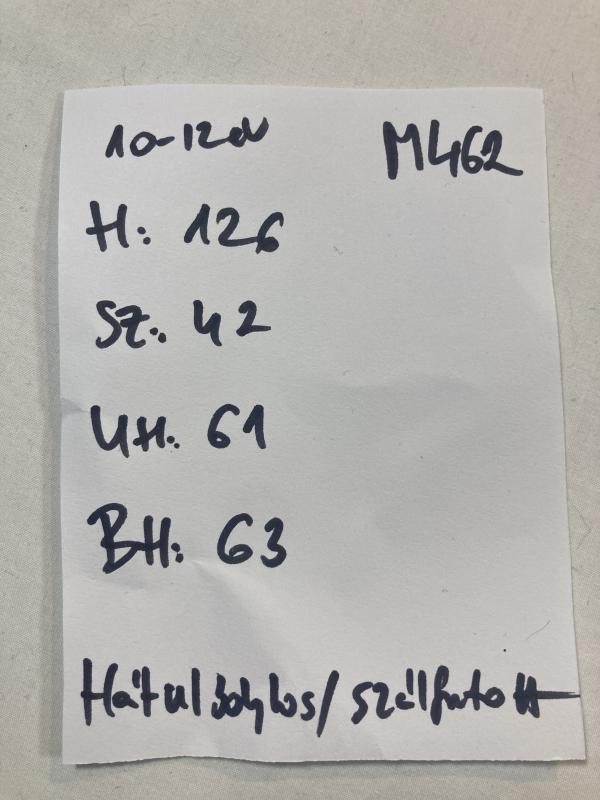 10-12év M462
H: 126
Sz: 42
UH: 61
BH: 63
Hátul bolyhos/szálfutott